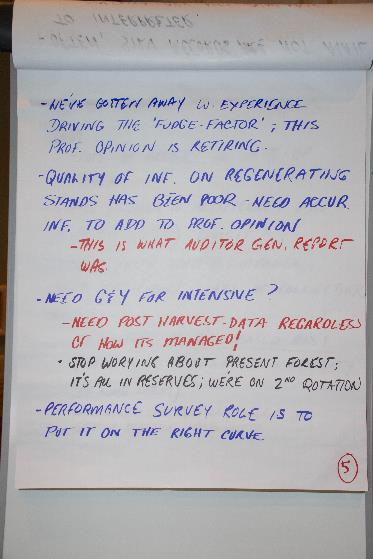 TO INTERPRETER
- OFTEN, SILV RECORDS ARE NOT AVAIL
- WE'VE GOTTEN AWAY W. EXPERIENCE
DRIVING THE 'FUDGE-FACTOR'; THIS
PROF. OPINION IS RETIRING.
- QUALITY OF INF. ON REGENERATIING
STANDS HAS BEEN POOR - NEED ACCUR.
INF. TO ADD TO PROF. OPINION
- THIS IS WHAT AUDITOR GEN. REPORT
WAS.
- NEED G&Y FOR INTENSIVE?
- NEED POST HARVEST-DATA REGARDLESS
OF HOW ITS MANAGED!
• STOP WORYING ABOUT PRESENT FOREST;
IT'S ALL IN RESERVES; WE'RE ON 2ND ROTATION
- PERFORMANCE SURVEY ROLE IS TO
PUT IT ON THE RIGHT CURVE.
5